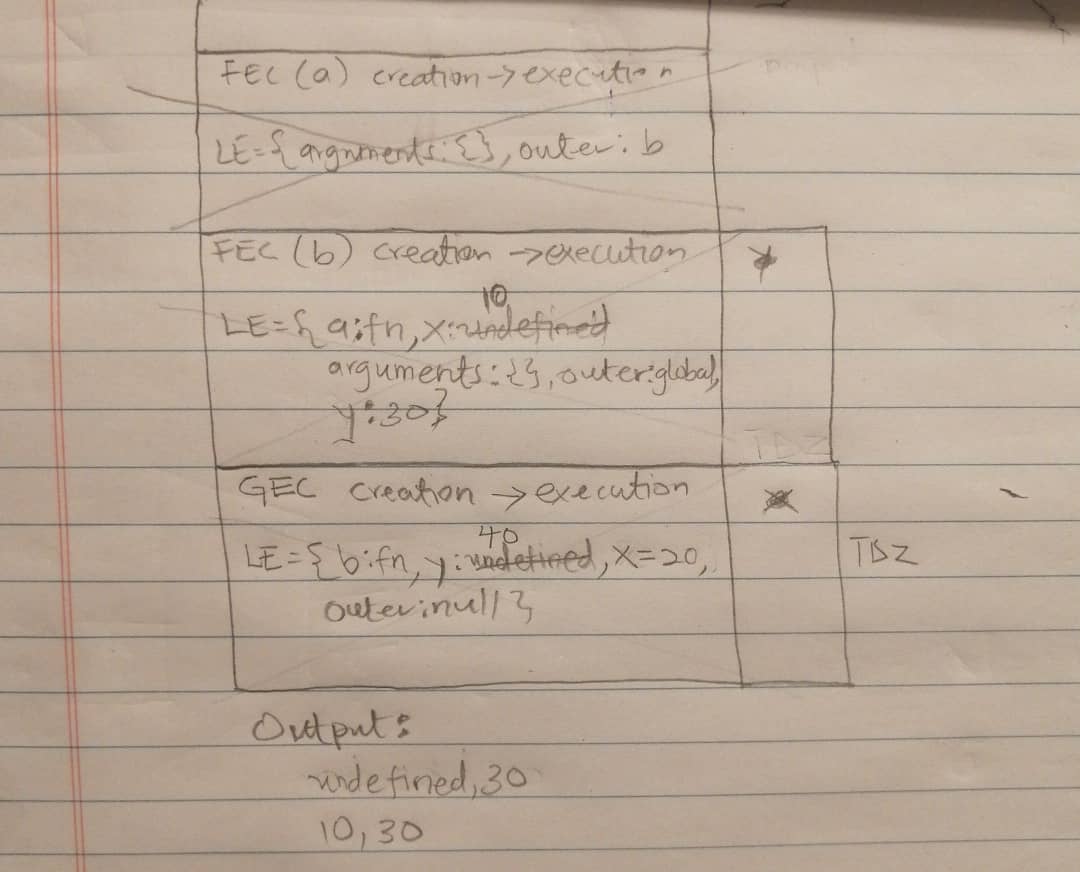 FEC (a) creation → execution
LE={ arguments: {}, outer: b
FEC (b) creation → execution
10
LE={ a:fn, x: undefined
arguments: {}, outer:global,
y:30}
TDZ
GEC creation → execution
40
LE={ b:fn, y: undefined, x=20,
outer:null }
TDZ
Output:
undefined, 30
10, 30